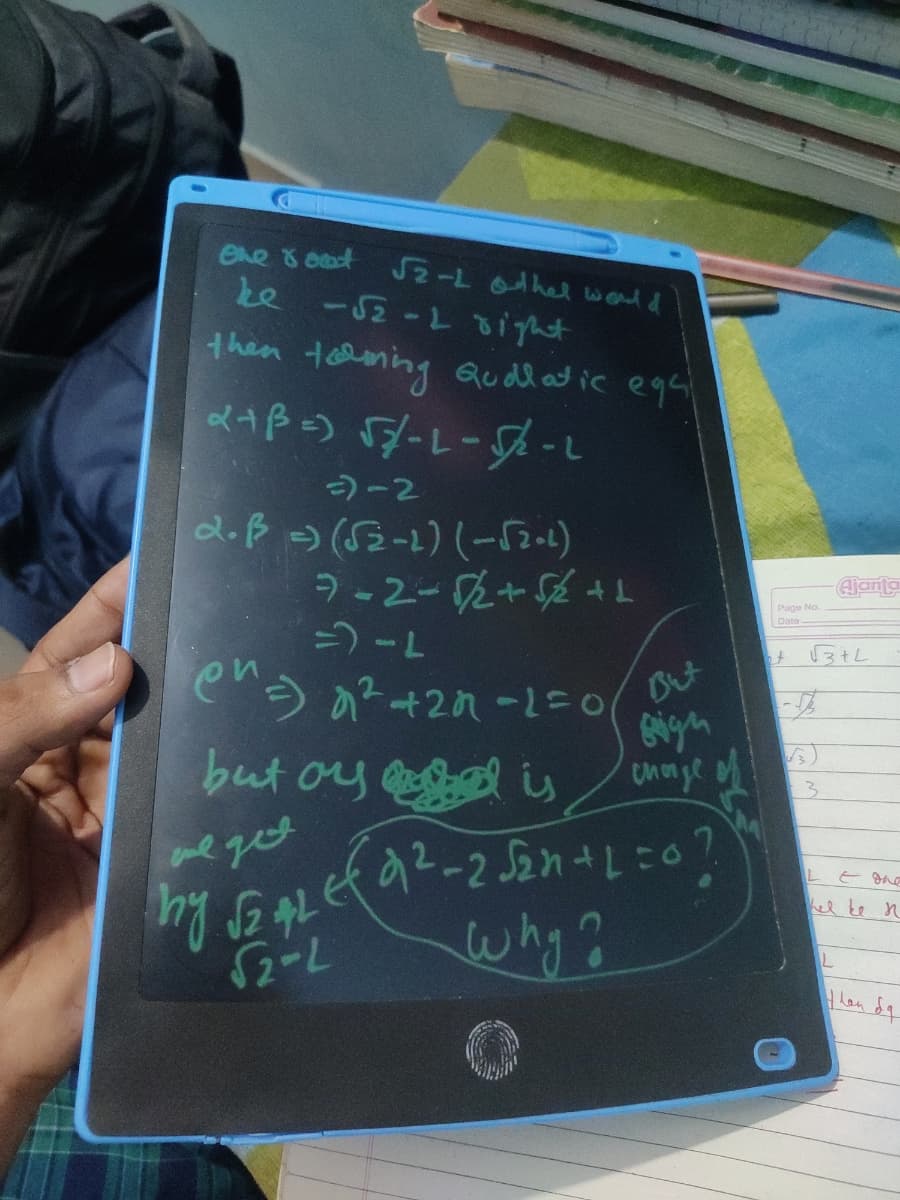 one root √2-1 other would
be -√2-1 right
then forming Qudratic eqn
α+β=) √2-1-√2-1
=)-2
α.β =) (√2-1) (-√2-1)
=) -2-√2+√2+1
=) -1
en =) x²+2x-1=0
but ans is
But
sign
change of
we get
by √2+1
√2-1
x²-2√2x+1=0?
why?
Ajanta
Page No.
Date
√3+1
-√3
√3)
3
1 ← one
be
1
then